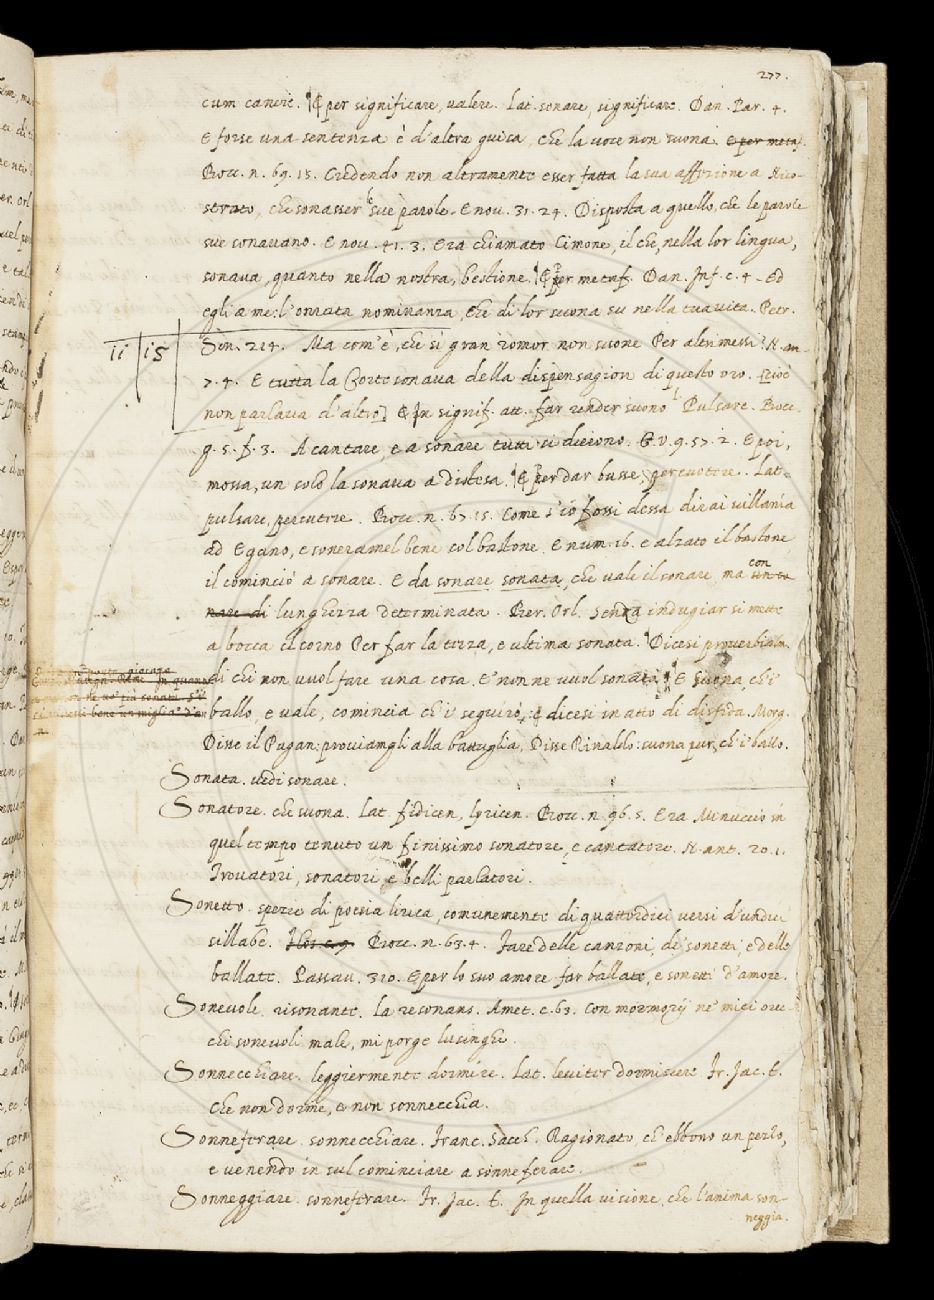 277.
cum canere. ¶ E per significare, valere. Lat. sonare, significare. Dan. Par. 4.
E forse sua sentenza è d'altra guisa, che la voce non suona. E per metaf.
Bocc. n. 69. 15. Credendo non altramente esser fatta la sua affezione a Nico-
strato, che sonasser le sue parole. E nov. 31. 24. Disposta a quello, che le parole
sue sonavano. E nov. 41. 3. Era chiamato Cimone, il che, nella lor lingua,
sonava, quanto nella nostra, bestione. ¶ E per metaf. Dan. Inf. c. 4. Ed
egli a me: l'onrata nominanza, Che di lor suona su nella tua vita. Petr.
11 15 Son. 214. Ma com'è, che si gran romor non suone Per altri messi? N. an-
7. 4. E tutta la Corte sonava della dispensagion di questo oro. [cioè
non parlava d'altro] E In signif. att. far render suono. Pulsare. Bocc.
g. 5. f. 3. A cantare, e a sonare tutti si diedono. G. V. 9. 57. 2. E poi,
mossa, un solo la sonava a distesa. ¶ E per dar busse, percuotere. Lat.
pulsare, percutere. Bocc. n. 67. 15. Come s'io fossi dessa dirai villania
ad Egano, e soneramel bene col bastone. E num. 16. e alzato il bastone
il cominciò a sonare. E da sonare sonata, che vale il sonare, ma con
lunghezza determinata. Ber. Orl. Senza indugiar si mette
a bocca il corno Per far la terza, e ultima sonata. Dicesi proverbialm.
di chi non vuol fare una cosa. E' non ne vuol sonata. ¶ E Suona, ch'i'
ballo, e vale, comincia ch'i' seguirò, e dicesi in atto di disfida. Morg.
Disse il Pagan: proviangli alla battaglia, Disse Rinaldo: suona pur, ch'i' ballo.
Sonata. vedi sonare.
Sonatore. che suona. Lat. fidicen, lyricen. Bocc. n. 96. 5. Era Minuccio in
quel tempo tenuto un finissimo sonatore, e cantatore. N. ant. 20. 1.
Trovatori, sonatori, e belli parlatori.
Sonetto. spezie di poesia lirica, comunemente di quattordici versi d'undici
sillabe. Bocc. n. 63. 4. Fare delle canzoni, de' sonetti, e delle
ballate. Passav. 320. E per lo suo amore far ballate, e sonetti d'amore.
Sonevole. risonante. La. resonans. Amet. c. 63. Con mormorij ne' miei orec-
chi sonevoli male, mi porge lusinghe.
Sonnecchiare. leggiermente dormire. Lat. leviter dormiscere. Fr. Jac. t.
che non dorme, e non sonnecchia.
Sonneferare. sonnecchiare. Franc. Sacch. Ragionato, ch'ebbono un pezzo,
e venendo in sul cominciare a sonneferare.
Sonneggiare. sonneferare. Fr. Jac. t. In quella visione, che l'anima son-
neggia.